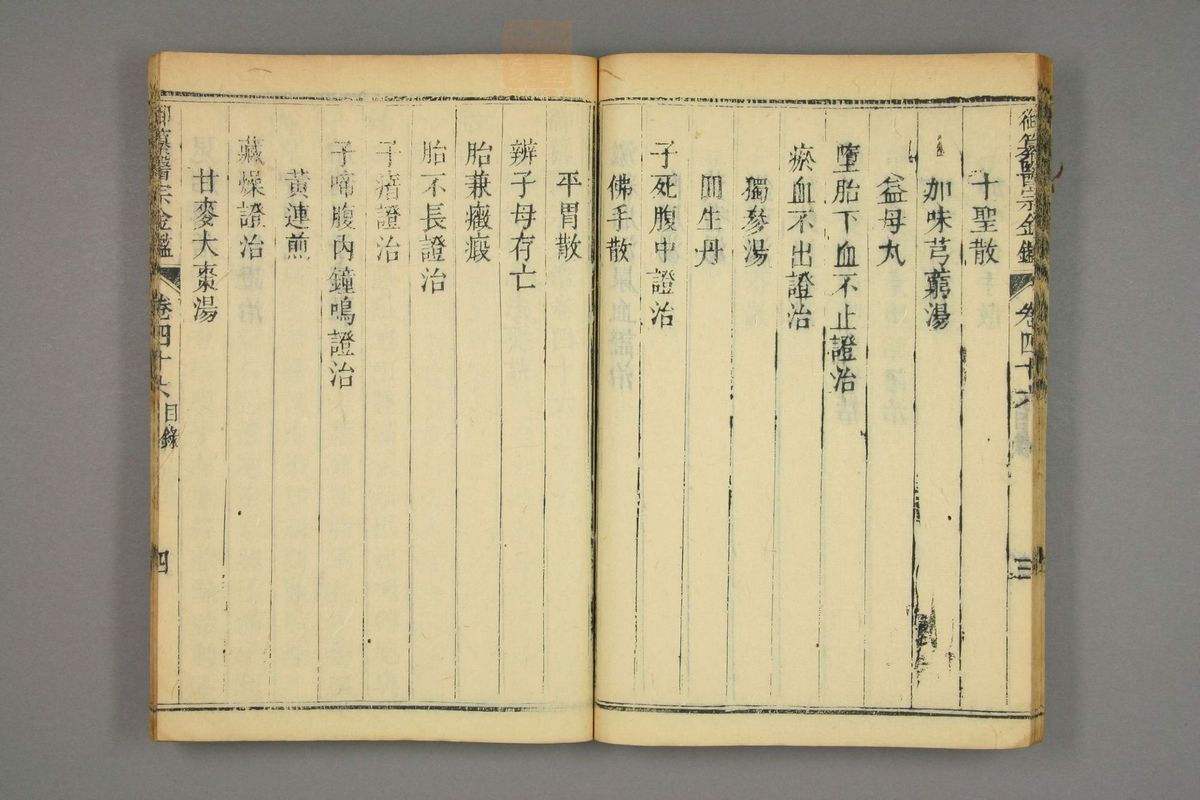 御纂醫宗金鑑 卷四十六 目錄 三
十聖散
加味芎藭湯
益母丸
墮胎下血不止證治
瘀血不出證治
獨參湯
回生丹
子死腹中證治
佛手散
平胃散
辨子母存亡
胎兼癥瘕
胎不長證治
子瘖證治
子啼腹內鐘鳴證治
黃連煎
藏燥證治
甘麥大棗湯
御纂醫宗金鑑 卷四十六 目錄 四